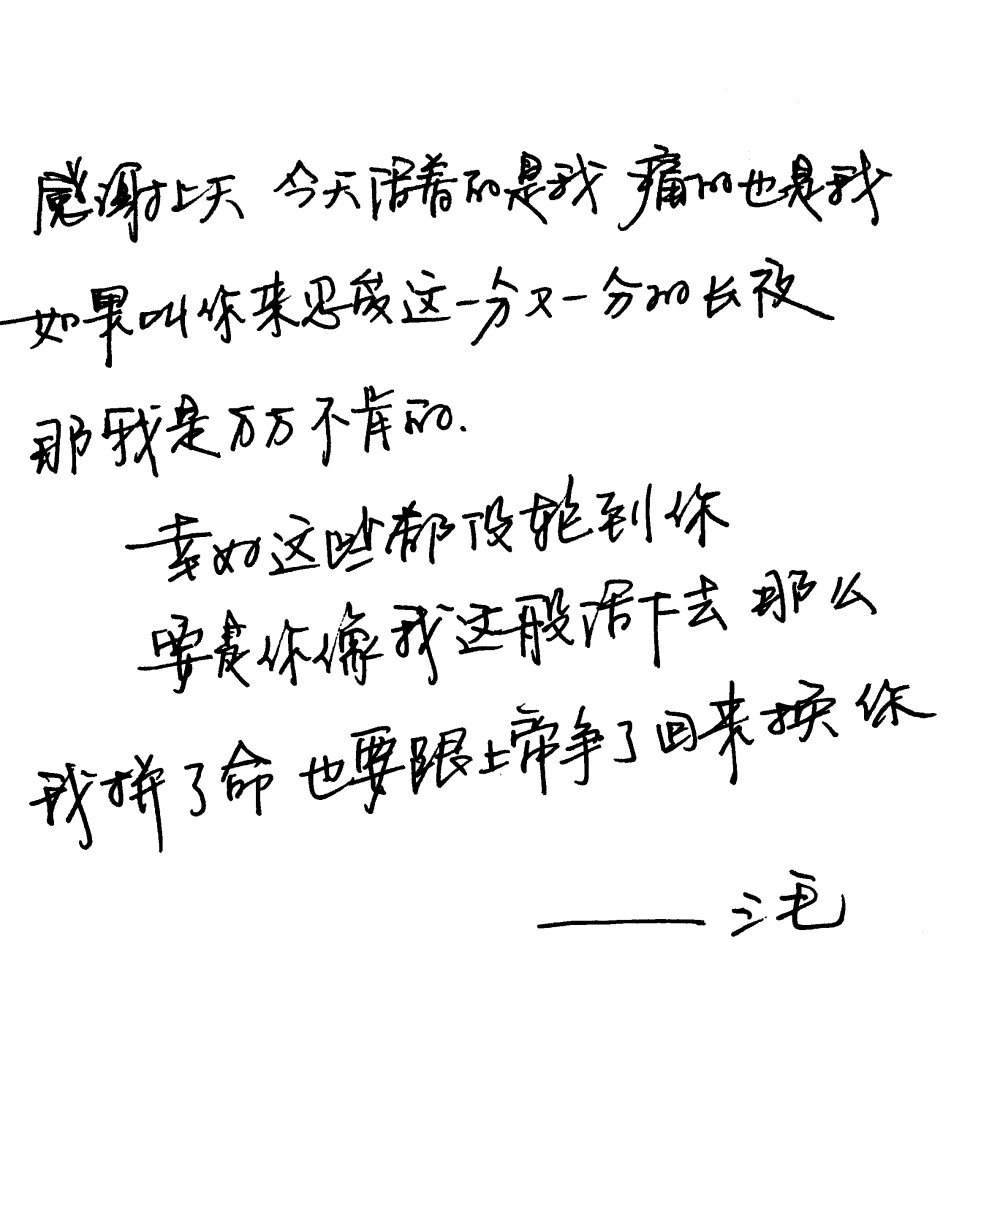 感谢上天 今天活着的是我 痛的也是我
如果叫你来忍受这一分又一分的长夜
那我是万万不肯的.
幸好这些都没轮到你
要是你像我这般活下去 那么
我拼了命 也要跟上帝争了回来换你
——三毛